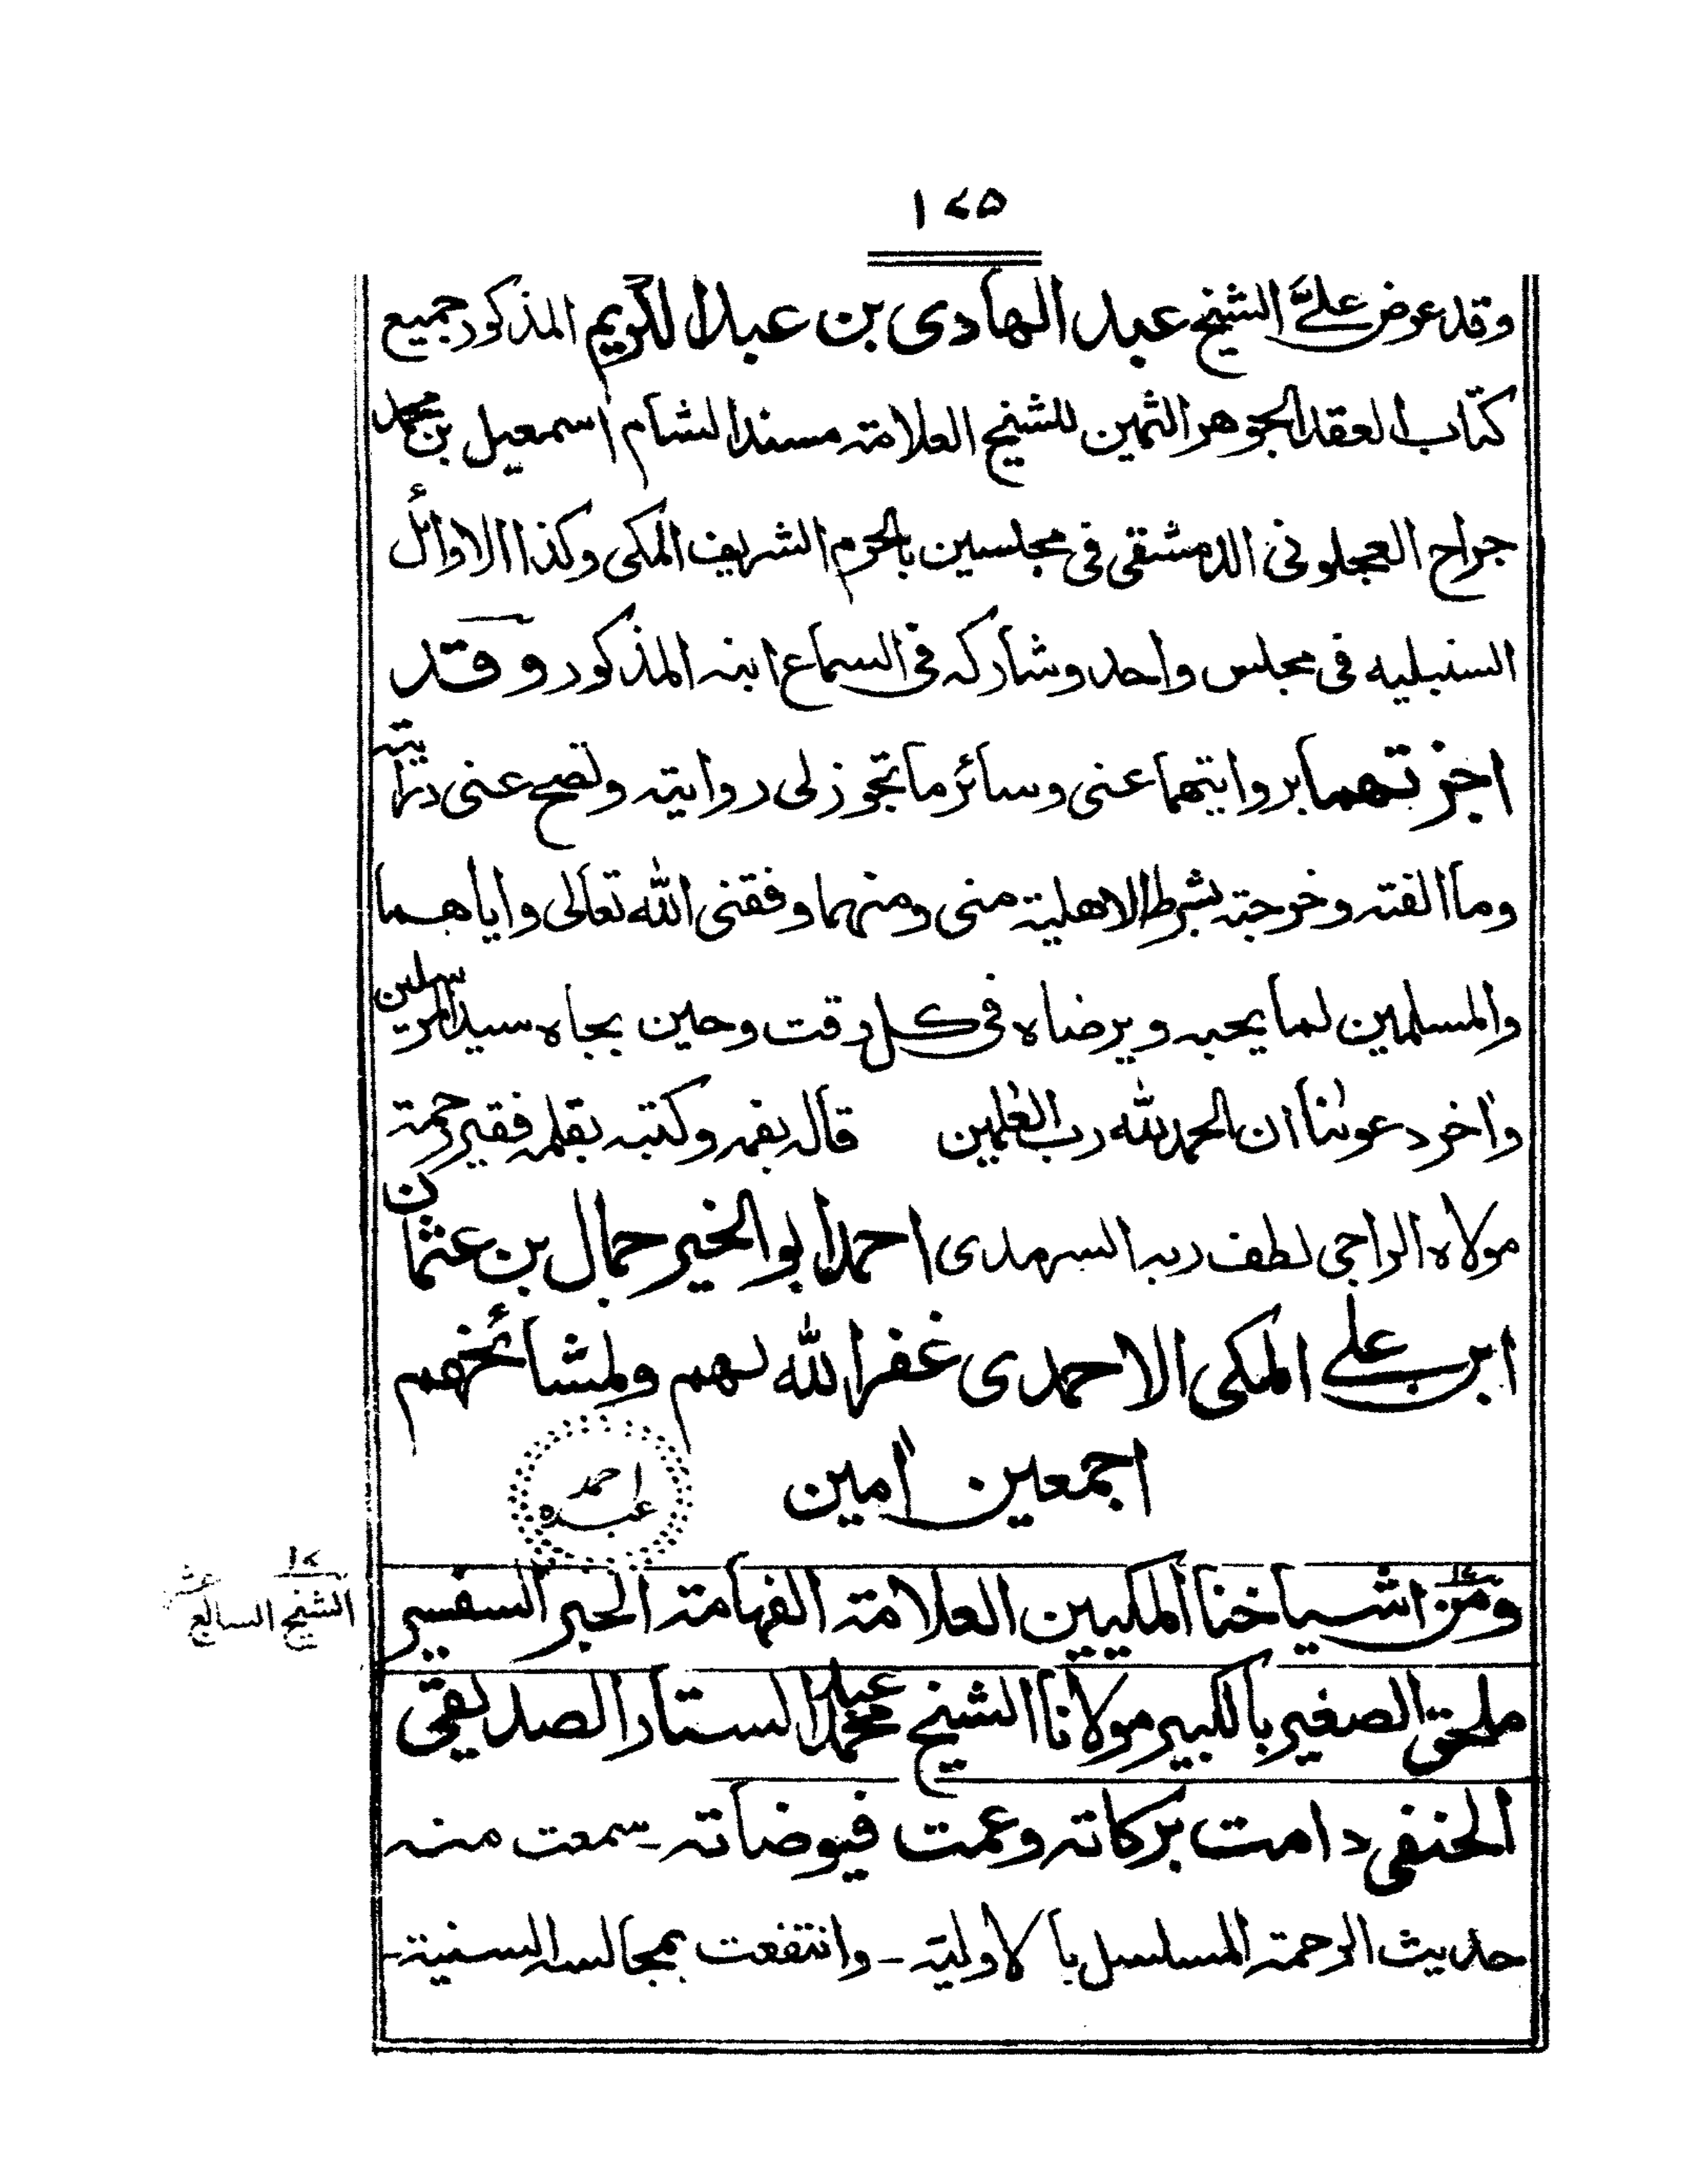 ١٧٥
وقد عرض علىَّ الشيخ عبد الهادى بن عبد الكريم المذكور جميع
كتاب العقد الجوهر الثمين للشيخ العلامة مسند الشام اسمعيل بن محمد
جراح العجلونى الدمشقى فى مجلسين بالحرم الشريف المكى وكذا الاوائل
السنبليه فى مجلس واحد وشاركه فى السماع ابنه المذكور وقد
اجزتهما بروايتهما عنى وسائر ما تجوز لى روايته وتصح عنى درايته
وما الفته وخرجته بشرط الاهلية منى ومنهما وفقنى الله تعالى واياهما
والمسلمين لما يحبه ويرضاه فى كل وقت وحين بجاه سيد المرسلين
واٰخر دعوٰنا ان الحمد لله رب العٰلمين قاله بفمه وكتبه بقلمه فقير رحمة
مولاه الراجى لطف ربه السرمدى احمد ابو الخير جمال بن عثمان
ابن على المكى الاحمدى غفر الله لهم ولمشائخهم
اجمعين اٰمين
احمد
عبده
ومن اشياخنا المكيين العلامة الفهامة الحبر السفسير
١٧
الشيخ السابع عشر
ملحق الصغير بالكبير مولانا الشيخ محمد عبد الستار الصديقى
الحنفى دامت بركاته وعمت فيوضاته - سمعت منه
حديث الرحمة المسلسل بالاولية - وانتفعت بمجالسه السنية -